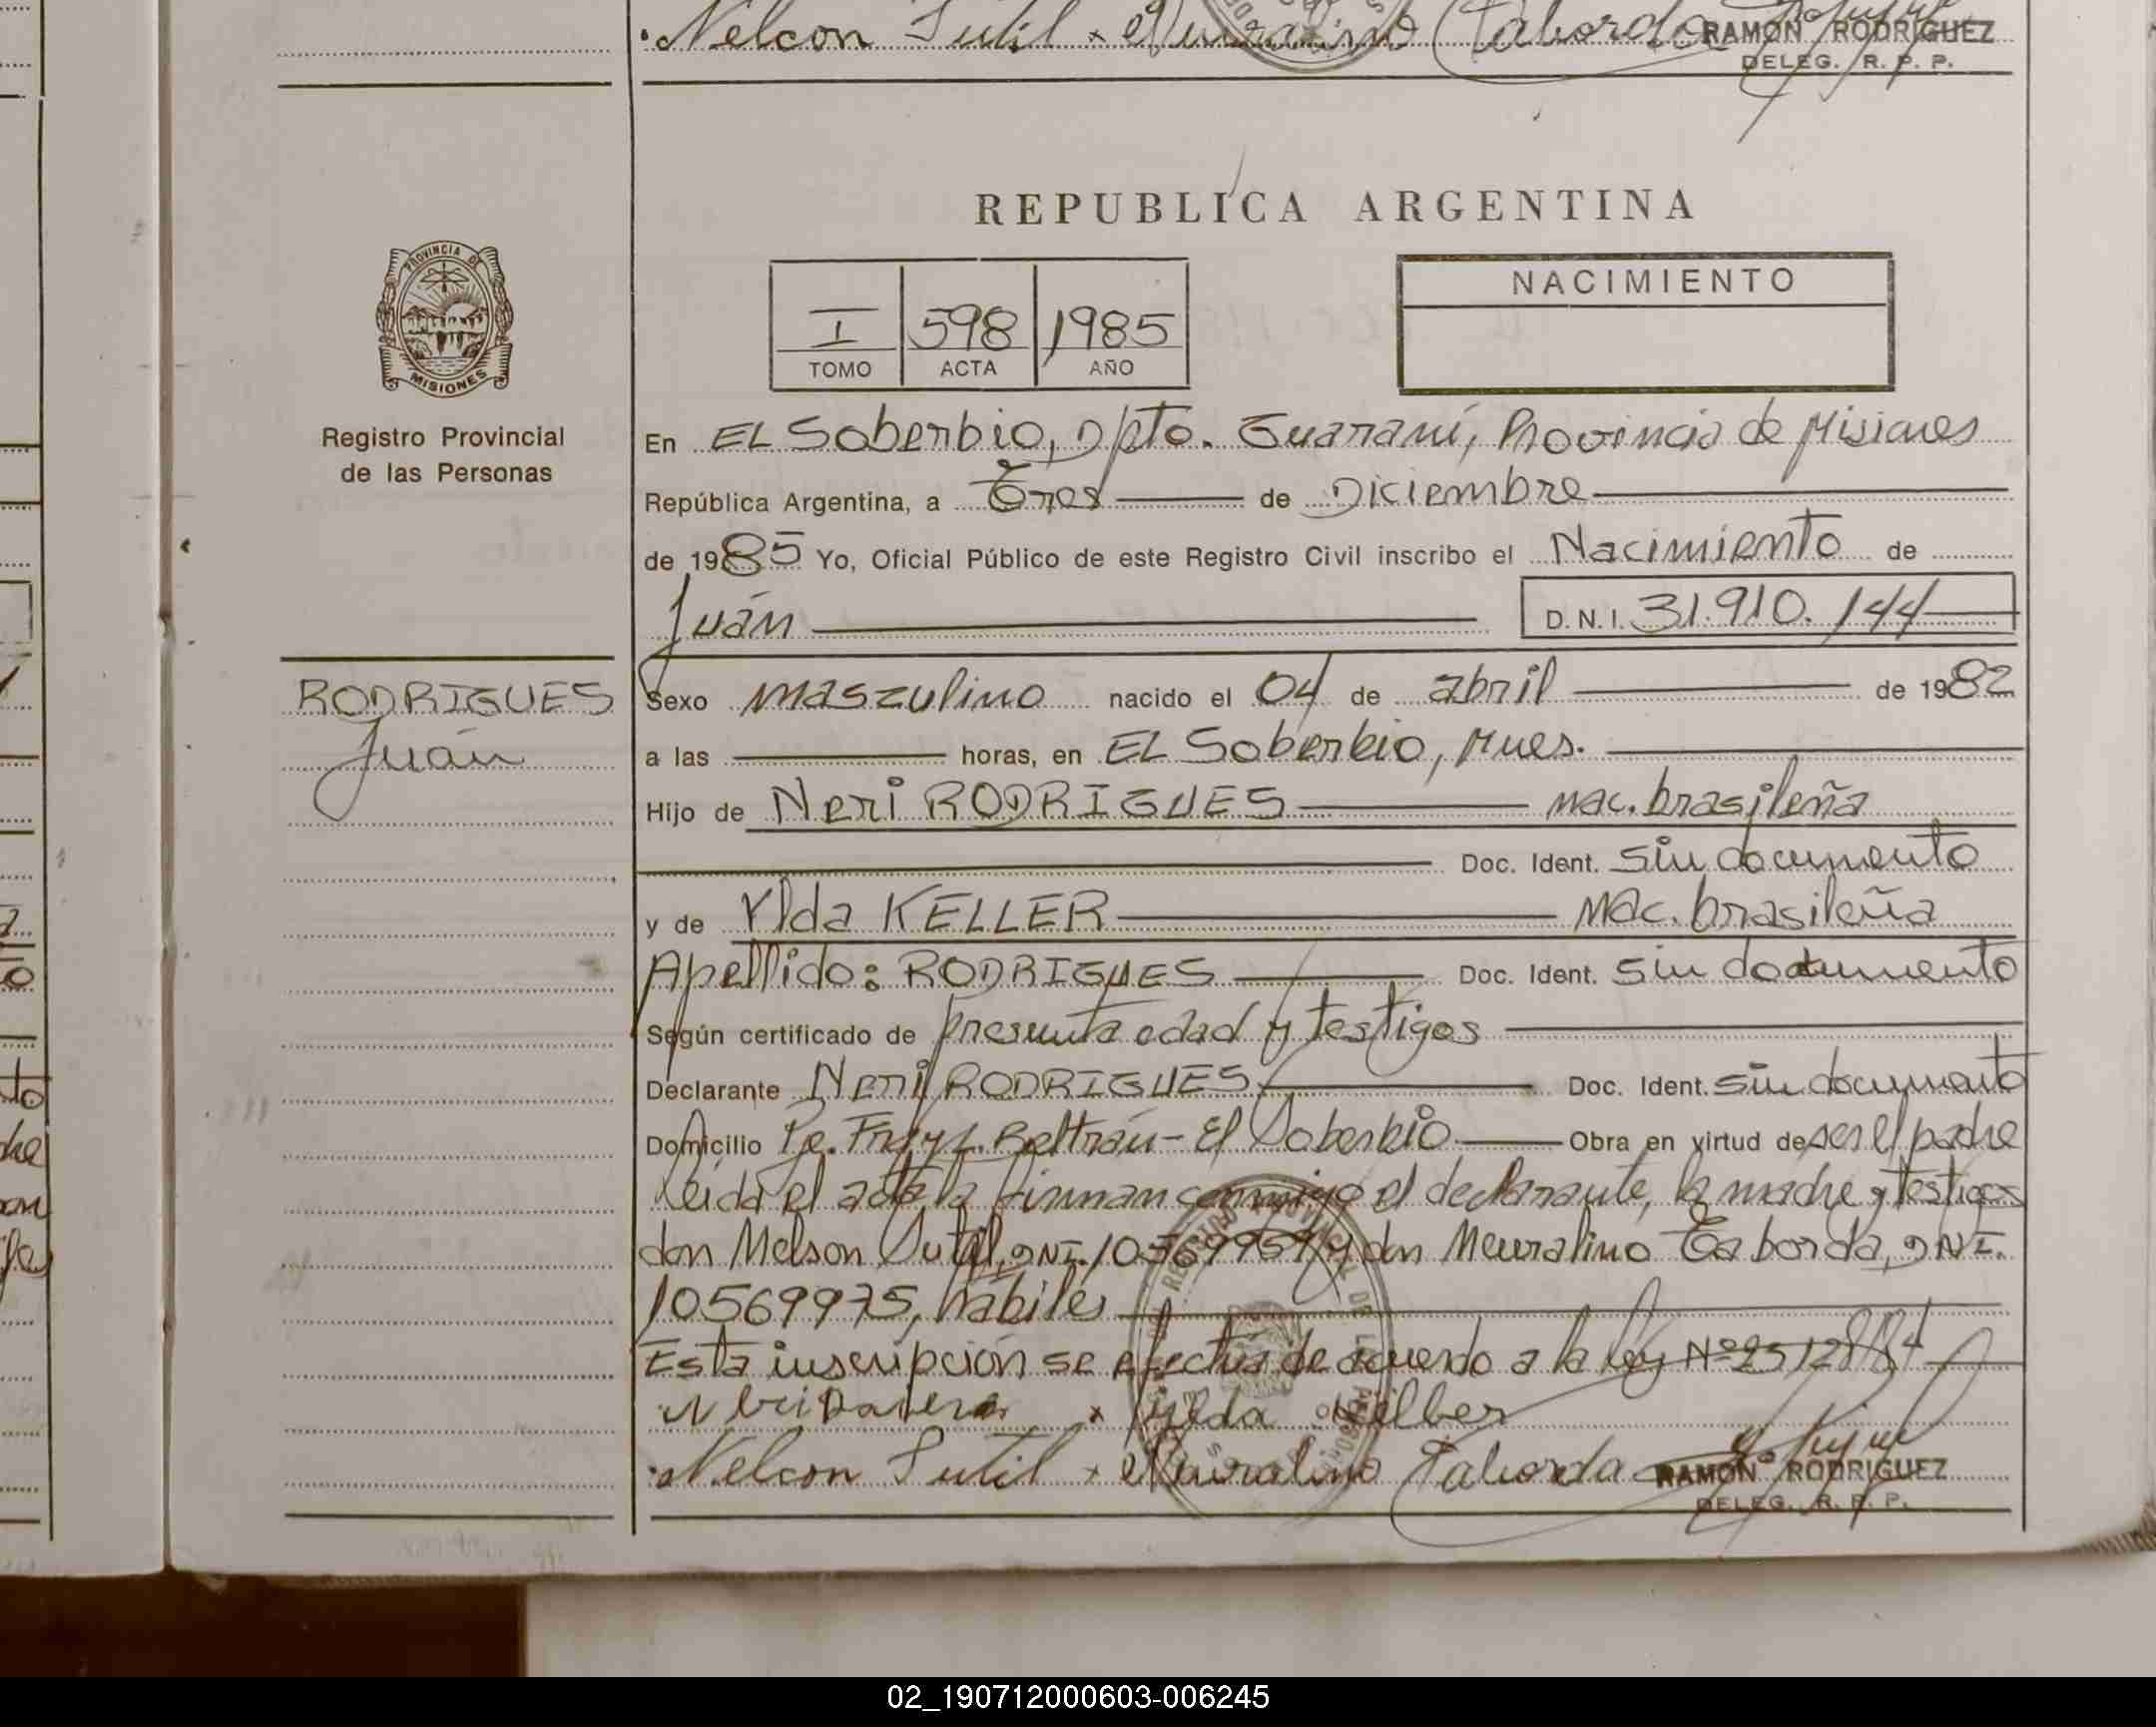 Nelson Sutil x Neuralino Taborda RAMON RODRIGUEZ
DELEG. R. P. P.
REPUBLICA ARGENTINA
PROVINCIA DE
MISIONES
Registro Provincial
de las Personas
I 598 1985
TOMO ACTA AÑO
NACIMIENTO
En EL Soberbio, Dpto. Guaraní, Provincia de Misiones
República Argentina, a Tres de Diciembre
de 1985 Yo, Oficial Público de este Registro Civil inscribo el Nacimiento de
Juán D.N.I. 31.910.144
RODRIGUES
Juán
Sexo masculino nacido el 04 de abril de 1982
a las horas, en EL Soberbio, Mnes.
Hijo de Neri RODRIGUES nac. brasileña
Doc. Ident. sin documento
y de Ylda KELLER nac. brasileña
Apellido: RODRIGUES Doc. Ident. sin documento
Según certificado de presunta edad y testigos
Declarante Neri RODRIGUES Doc. Ident. sin documento
Domicilio Pje. Fray L. Beltrán - El Soberbio Obra en virtud de ser el padre
Leida el acta la firman conmigo el declarante, la madre y testigos
don Nelson Sutil, DNI. y don Neuralino Taborda, DNI.
10569975, hábiles
Esta inscripción se efectua de acuerdo a la ley Nº
x Ylda
Nelson Sutil x Neuralino Taborda RAMON RODRIGUEZ
DELEG. R. P. P.
02_190712000603-006245